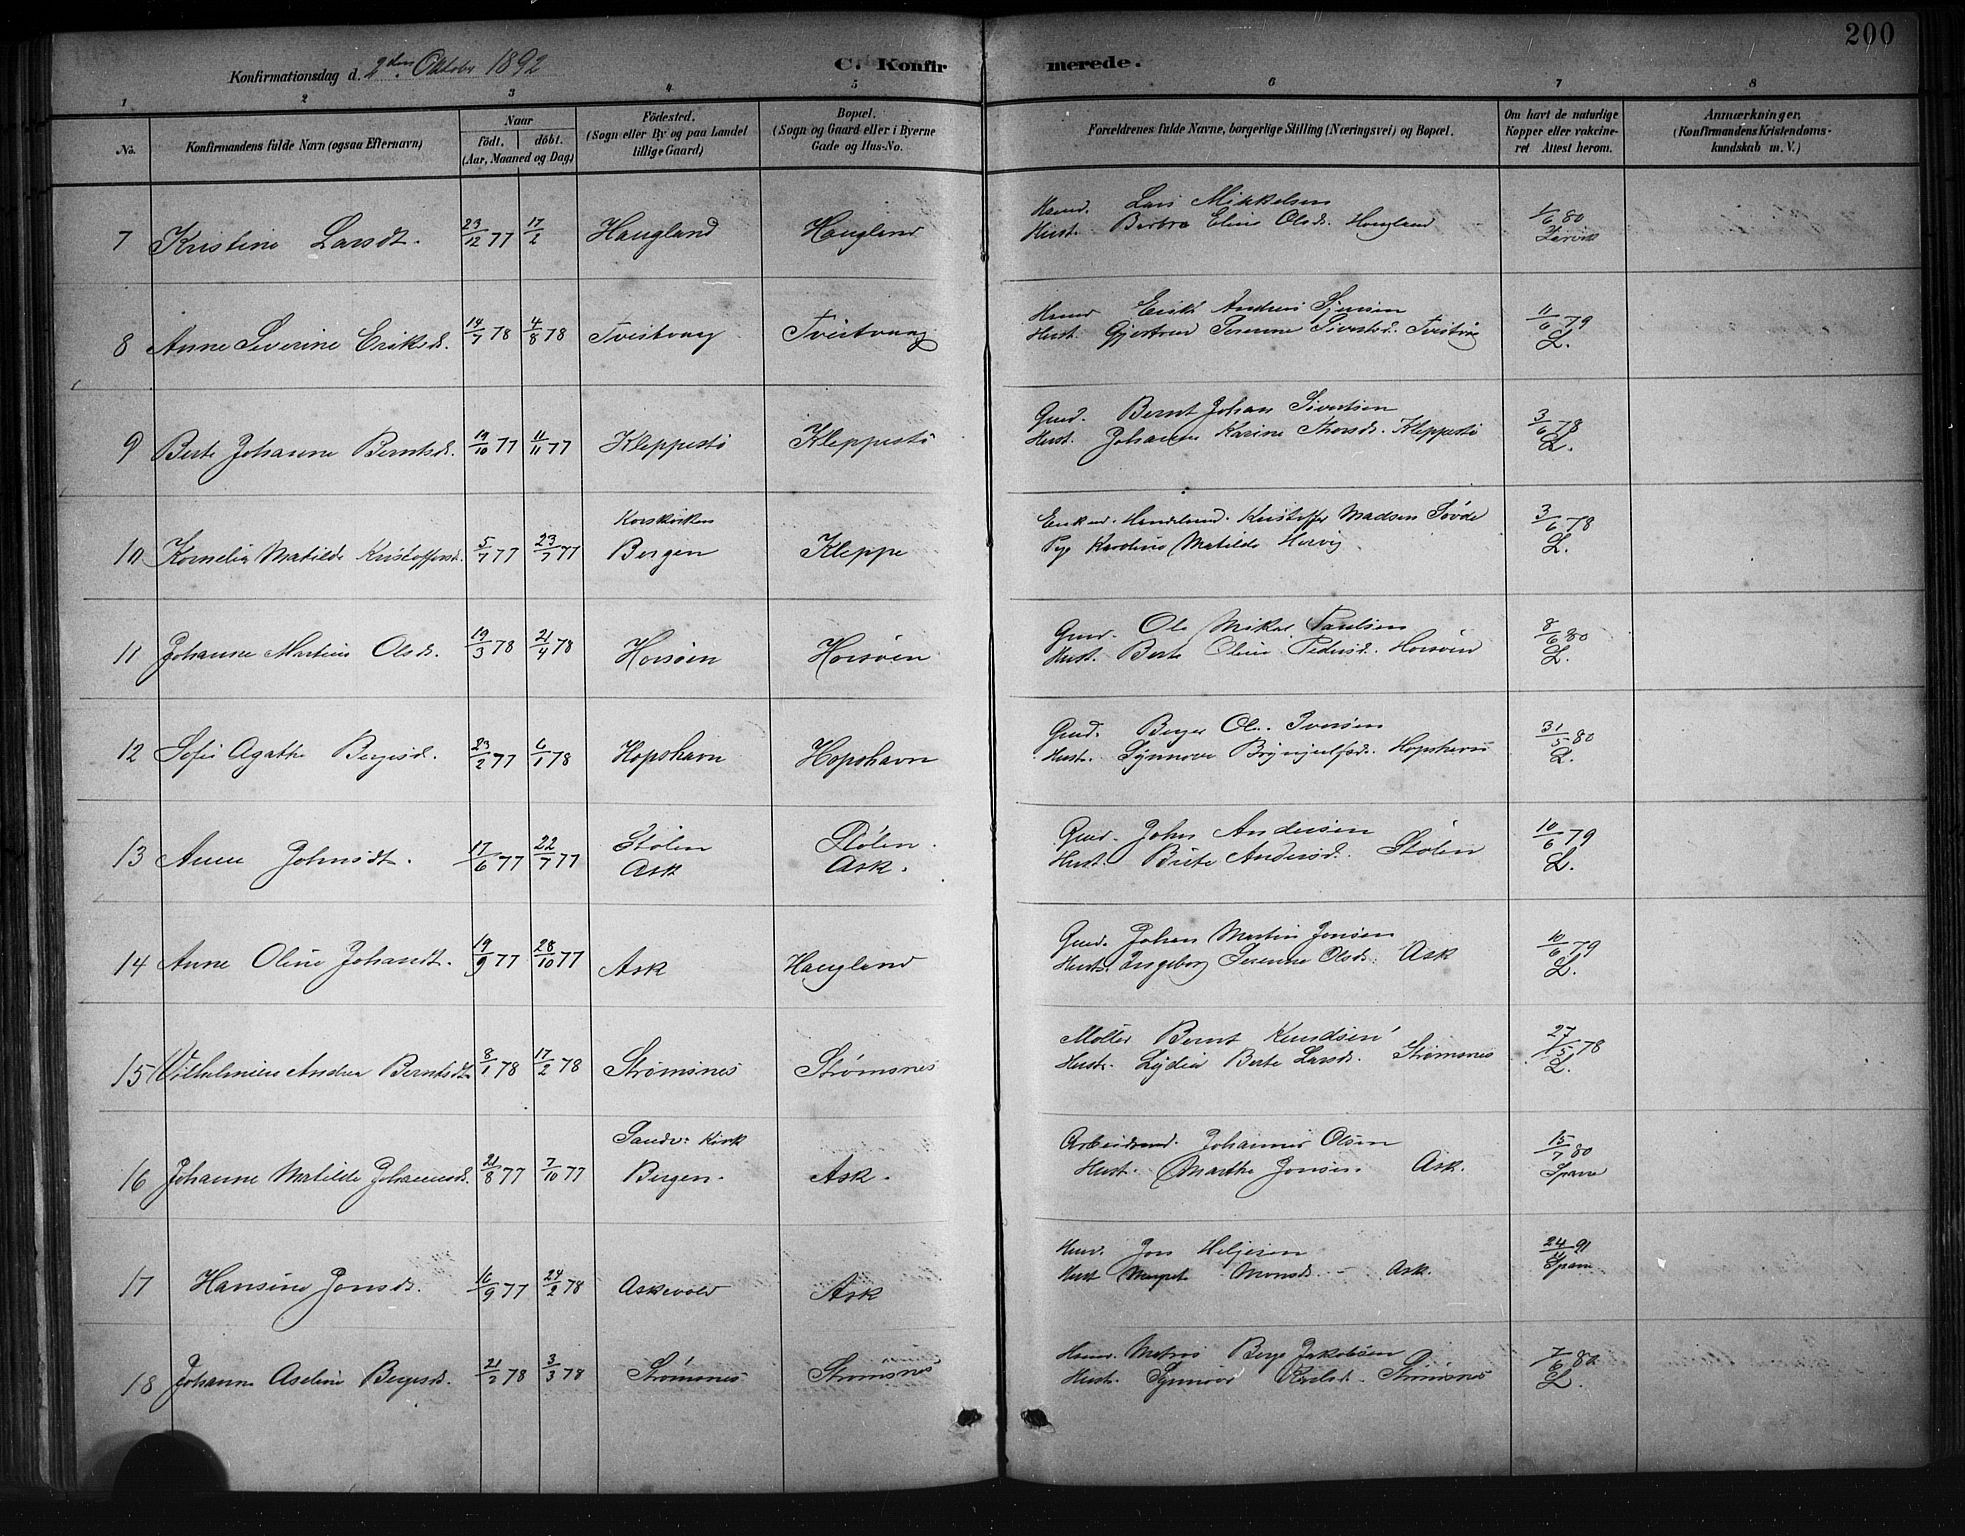 200
Konfirmationsdag d. 2den Oktober 1892
C. Konfirmerede.
1 2 3 4 5 6 7 8
No.
Konfirmandens fulde Navn (ogsaa Efternavn)
Naar
født. døbt.
(Aar, Maaned og Dag)
Fødested.
(Sogn eller By og paa Landet
tillige Gaard)
Bopæl.
(Sogn og Gaard eller i Byerne
Gade og Hus-No.
Forældrenes fulde Navne, borgerlige Stilling (Næringsvei) og Bopæl.
Om havt de naturlige
Kopper eller vakcine-
ret Attest herom.
Anmærkninger.
(Konfirmandens Kristendoms-
kundskab m. V.)
7 Kristine Larsdt. 23/12 77 17/2 Haugland Haugland
Lars Mikkelsen
Hust. Berbra Eline Olsd. Haugland
1/6 80
8 Anne Severine Eriksd. 19/7 78 4/8 78 Tveitvaag Tveitvaag
Erik Andreas
Hust. Gjertrud Serenne Sivertsd. Tveitvåg
11/6 79
L.
9 Berte Johanne Berntsd. 19/10 77 11/11 77 Kleppestö Kleppestö
Gmd. Bernt Johan Sivertsen
Hust. Johanne Karine Thorsd. Kleppestö
3/6 78
L.
10 Kornelia Matilde Kristoffersd. 5/7 77 23/7 77 Korskirken
Bergen Kleppe
Enkem. Handelsmd. Kristoffer Madsen
Pige Karoline Matilde
3/6 78
L.
11 Johanne Martine Olsd. 19/3 78 21/4 78 Horsöen Horsöen
Gmd. Ole Mikal Paulsen
Hust. Berte Oline Pedersd. Horsöen
8/6 80
L.
12 Sofie Agathe Bergesd. 23/2 77 6/1 78 Hopshavn Hopshavn
Gmd. Berge Ol. Iversen
Hust. Synnove Brynjulfsd. Hopshavn
31/5 80
L.
13 Anne Johnsdt. 17/6 77 22/7 77 Stølen
Ask Stølen.
Ask.
Gmd. John Andersen
Hust. Brite Andersd. Stølen
10/6 79
L.
14 Anne Oline Johansdt. 19/9 77 28/10 77 Ask Haugland
Gmd. Johan Martin Jonsen
Hust. Ingeborg Serenne Olsd. Ask
10/6 79
L.
15 Vilhelmine Andrea Berntsdt. 8/1 78 17/2 78 Strømsnes Strømsnes
Møller Bernt Knudsen
Hust. Lydia Berte Larsd. Strømsnes
27/5 78
L.
16 Johanne Matilde Johannesd. 21/8 77 7/10 77 Sandv. Kirk
Bergen. Ask.
Arbeidsmd. Johannes Olsen
Hust. Marthe Jonsen Ask.
15/7 80
17 Hansine Jonsd. 16/9 77 24/2 78 Askevold Ask
Jon Heljesen
Hust Monsd. - Ask.
18 Johanne Aseline Bergesd. 21/2 78 3/3 78 Strømsnes Strømsnes
Matros Berge Jakobsen
Hust. Synnove Strømsnes
7/6 80
L.